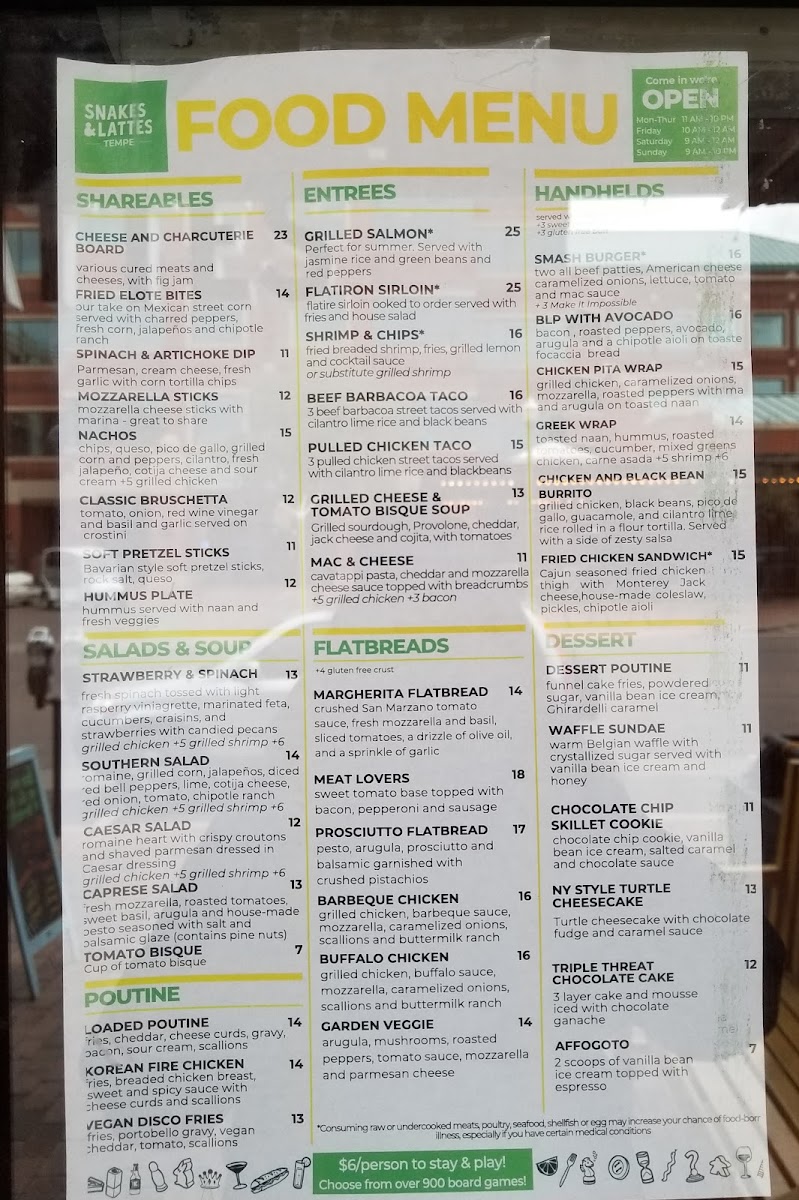 SNAKES
& LATTES
TEMPE
FOOD MENU
Come in we're
OPEN
Mon-Thur 11 AM - 10 PM
Friday 10 AM - 12 AM
Saturday 9 AM - 12 AM
Sunday 9 AM - 10 PM
SHAREABLES
CHEESE AND CHARCUTERIE 23
BOARD
various cured meats and
cheeses, with fig jam
FRIED ELOTE BITES 14
our take on Mexican street corn
served with charred peppers,
fresh corn, jalapeños and chipotle
ranch
SPINACH & ARTICHOKE DIP 11
Parmesan, cream cheese, fresh
garlic with corn tortilla chips
MOZZARELLA STICKS 12
mozzarella cheese sticks with
marina - great to share
NACHOS 15
chips, queso, pico de gallo, grilled
corn and peppers, cilantro, fresh
jalapeño, cotija cheese and sour
cream +5 grilled chicken
CLASSIC BRUSCHETTA 12
tomato, onion, red wine vinegar
and basil and garlic served on
crostini
SOFT PRETZEL STICKS 11
Bavarian style soft pretzel sticks,
rock salt, queso
HUMMUS PLATE 12
hummus served with naan and
fresh veggies
SALADS & SOUP
STRAWBERRY & SPINACH 13
fresh spinach tossed with light
rasperry viniagrette, marinated feta,
cucumbers, craisins, and
strawberries with candied pecans
grilled chicken +5 grilled shrimp +6
SOUTHERN SALAD 14
romaine, grilled corn, jalapeños, diced
red bell peppers, lime, cotija cheese,
red onion, tomato, chipotle ranch
grilled chicken +5 grilled shrimp +6
CAESAR SALAD 12
romaine heart with crispy croutons
and shaved parmesan dressed in
Caesar dressing
grilled chicken +5 grilled shrimp +6
CAPRESE SALAD 13
fresh mozzarella, roasted tomatoes,
sweet basil, arugula and house-made
pesto seasoned with salt and
balsamic glaze (contains pine nuts)
TOMATO BISQUE 7
Cup of tomato bisque
POUTINE
LOADED POUTINE 14
fries, cheddar, cheese curds, gravy,
bacon, sour cream, scallions
KOREAN FIRE CHICKEN 14
fries, breaded chicken breast,
sweet and spicy sauce with
cheese curds and scallions
VEGAN DISCO FRIES 13
fries, portobello gravy, vegan
cheddar, tomato, scallions
ENTREES
GRILLED SALMON* 25
Perfect for summer. Served with
jasmine rice and green beans and
red peppers
FLATIRON SIRLOIN* 25
flatire sirloin ooked to order served with
fries and house salad
SHRIMP & CHIPS* 16
fried breaded shrimp, fries, grilled lemon
and cocktail sauce
or substitute grilled shrimp
BEEF BARBACOA TACO 16
3 beef barbacoa street tacos served with
cilantro lime rice and black beans
PULLED CHICKEN TACO 15
3 pulled chicken street tacos served
with cilantro lime rice and blackbeans
GRILLED CHEESE & 13
TOMATO BISQUE SOUP
Grilled sourdough, Provolone, cheddar,
jack cheese and cojita, with tomatoes
MAC & CHEESE 11
cavatappi pasta, cheddar and mozzarella
cheese sauce topped with breadcrumbs
+5 grilled chicken +3 bacon
FLATBREADS
+4 gluten free crust
MARGHERITA FLATBREAD 14
crushed San Marzano tomato
sauce, fresh mozzarella and basil,
sliced tomatoes, a drizzle of olive oil,
and a sprinkle of garlic
MEAT LOVERS 18
sweet tomato base topped with
bacon, pepperoni and sausage
PROSCIUTTO FLATBREAD 17
pesto, arugula, prosciutto and
balsamic garnished with
crushed pistachios
BARBEQUE CHICKEN 16
grilled chicken, barbeque sauce,
mozzarella, caramelized onions,
scallions and buttermilk ranch
BUFFALO CHICKEN 16
grilled chicken, buffalo sauce,
mozzarella, caramelized onions,
scallions and buttermilk ranch
GARDEN VEGGIE 14
arugula, mushrooms, roasted
peppers, tomato sauce, mozzarella
and parmesan cheese
HANDHELDS
served
+3 sweet
+3 gluten free bun
SMASH BURGER* 16
two all beef patties, American cheese
caramelized onions, lettuce, tomato
and mac sauce
+ 3 Make It Impossible
BLP WITH AVOCADO 16
bacon, roasted peppers, avocado,
arugula and a chipotle aioli on toaste
focaccia bread
CHICKEN PITA WRAP 15
grilled chicken, caramelized onions,
mozzarella, roasted peppers with ma
and arugula on toasted naan
GREEK WRAP 14
toasted naan, hummus, roasted
tomatoes, cucumber, mixed greens
chicken, carne asada +5 shrimp +6
CHICKEN AND BLACK BEAN 15
BURRITO
grilled chicken, black beans, pico de
gallo, guacamole, and cilantro lime
rice rolled in a flour tortilla. Served
with a side of zesty salsa
FRIED CHICKEN SANDWICH* 15
Cajun seasoned fried chicken
thigh with Monterey Jack
cheese,house-made coleslaw,
pickles, chipotle aioli
DESSERT
DESSERT POUTINE 11
funnel cake fries, powdered
sugar, vanilla bean ice cream,
Ghirardelli caramel
WAFFLE SUNDAE 11
warm Belgian waffle with
crystallized sugar served with
vanilla bean ice cream and
honey
CHOCOLATE CHIP 11
SKILLET COOKIE
chocolate chip cookie, vanilla
bean ice cream, salted caramel
and chocolate sauce
NY STYLE TURTLE 13
CHEESECAKE
Turtle cheesecake with chocolate
fudge and caramel sauce
TRIPLE THREAT 12
CHOCOLATE CAKE
3 layer cake and mousse
iced with chocolate
ganache
AFFOGOTO 7
2 scoops of vanilla bean
ice cream topped with
espresso
*Consuming raw or undercooked meats, poultry, seafood, shellfish or egg may increase your chance of food-borr
illness, especially if you have certain medical conditions
$6/person to stay & play!
Choose from over 900 board games!